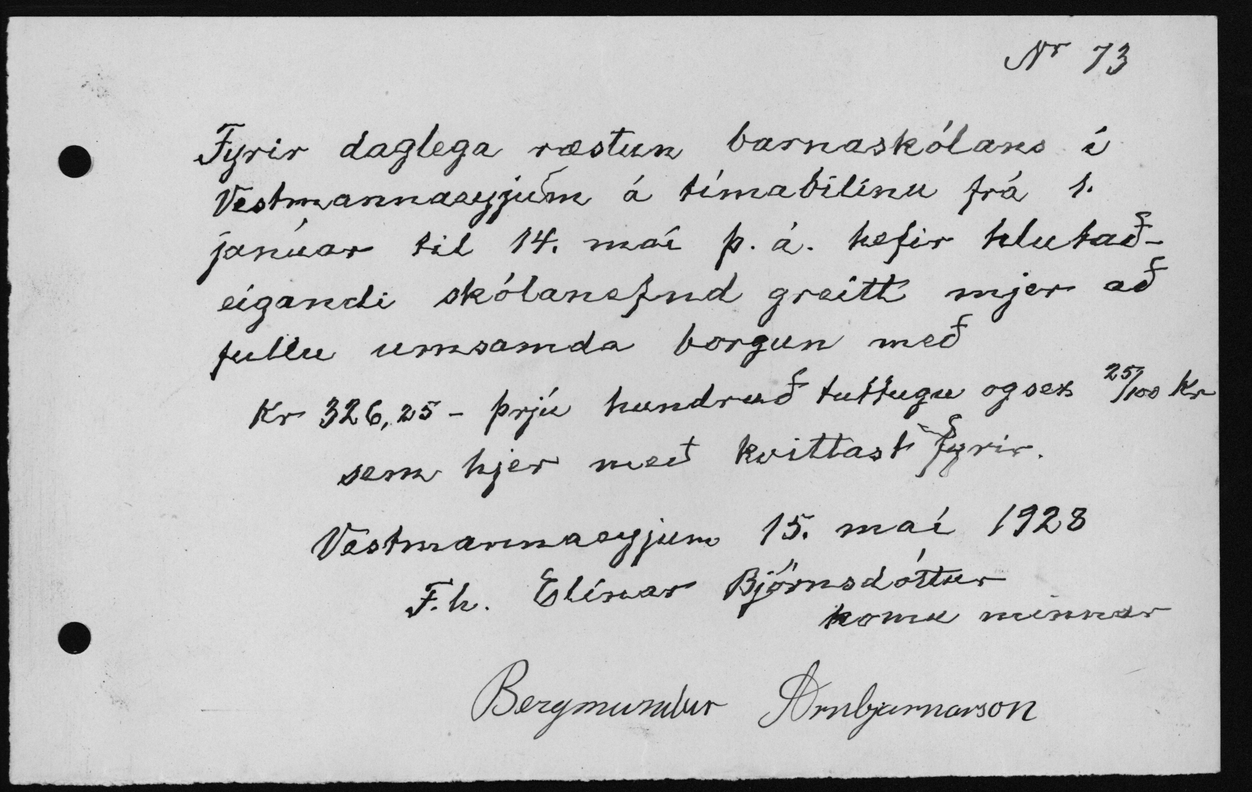 Nr 73
Fyrir daglega ræstun barnaskólans í
Vestmannaeyjum á tímabilinu frá 1.
janúar til 14. maí þ. á. hefir hlutað-
eigandi skólanefnd greitt mjer að
fullu umsamda borgun með
Kr 326,25 - þrjú hundruð tuttugu og sex 25/100 Kr
sem hjer með kvittast fyrir.
Vestmannaeyjum 15. maí 1928
F.h. Elínar Björnsdóttur
konu minnar
Bergmundur Arnbjarnarson